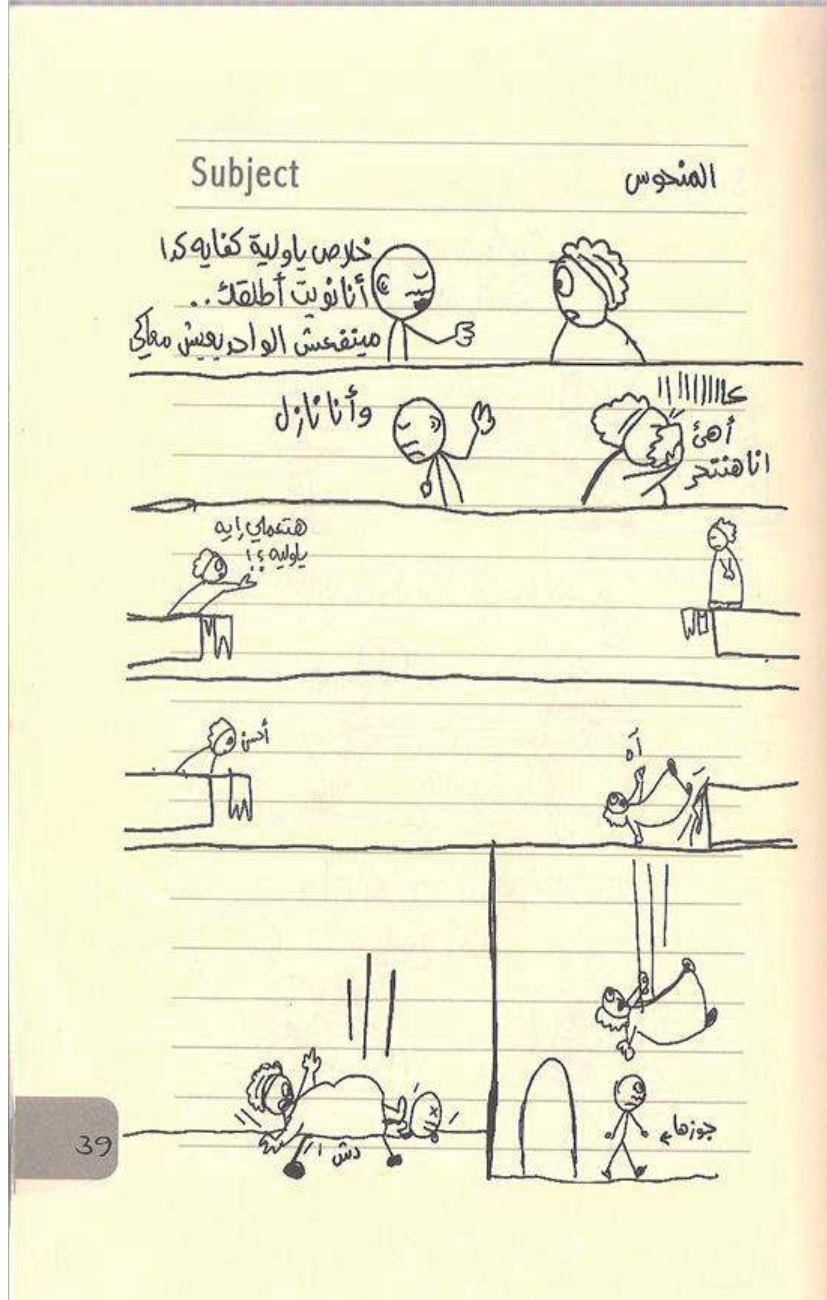 Subject
المنحوس
خلاص ياولية كفايه كدا
أنا نويت أطلقك..
مينفعش الواحد يعيش معاكي
عااااااااا
أهئ
انا هنتحر
وأنا نازل
هتعملي إيه
ياوليه ؟!
أحسن
آه
جوزها
دش!
39